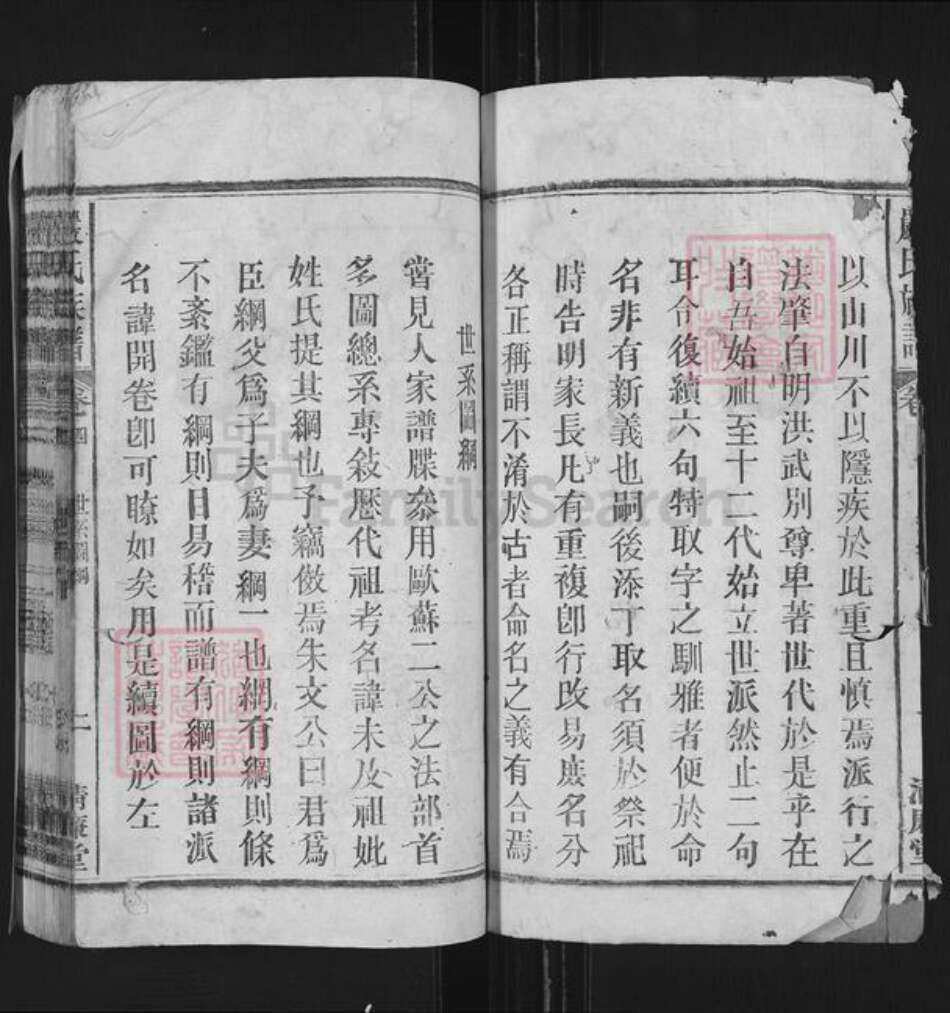 以山川不以隱疾於此重且慎焉派行之
法肇自明洪武別尊卑著世代於是乎在
自吾始祖至十二代始立世派然止二句
耳今復續六句特取字之馴雅者便於命
名非有新義也嗣後添丁取名須於祭祀
時告明家長凡有重複卽行改易庶名分
各正稱謂不淆於古者命名之義有合焉
世系圖綱
嘗見人家譜牒叅用歐蘇二公之法部首
多圖總系專敍歷代祖考名諱未及祖妣
姓氏提其綱也予竊倣焉朱文公曰君爲
臣綱父爲子夫爲妻綱一也網有綱則條
不紊鑑有綱則目易稽而譜有綱則諸派
名諱開卷卽可瞭如矣用是續圖於左
嚴氏族譜 卷四 世系圖綱 二 清廉堂
FamilySearch